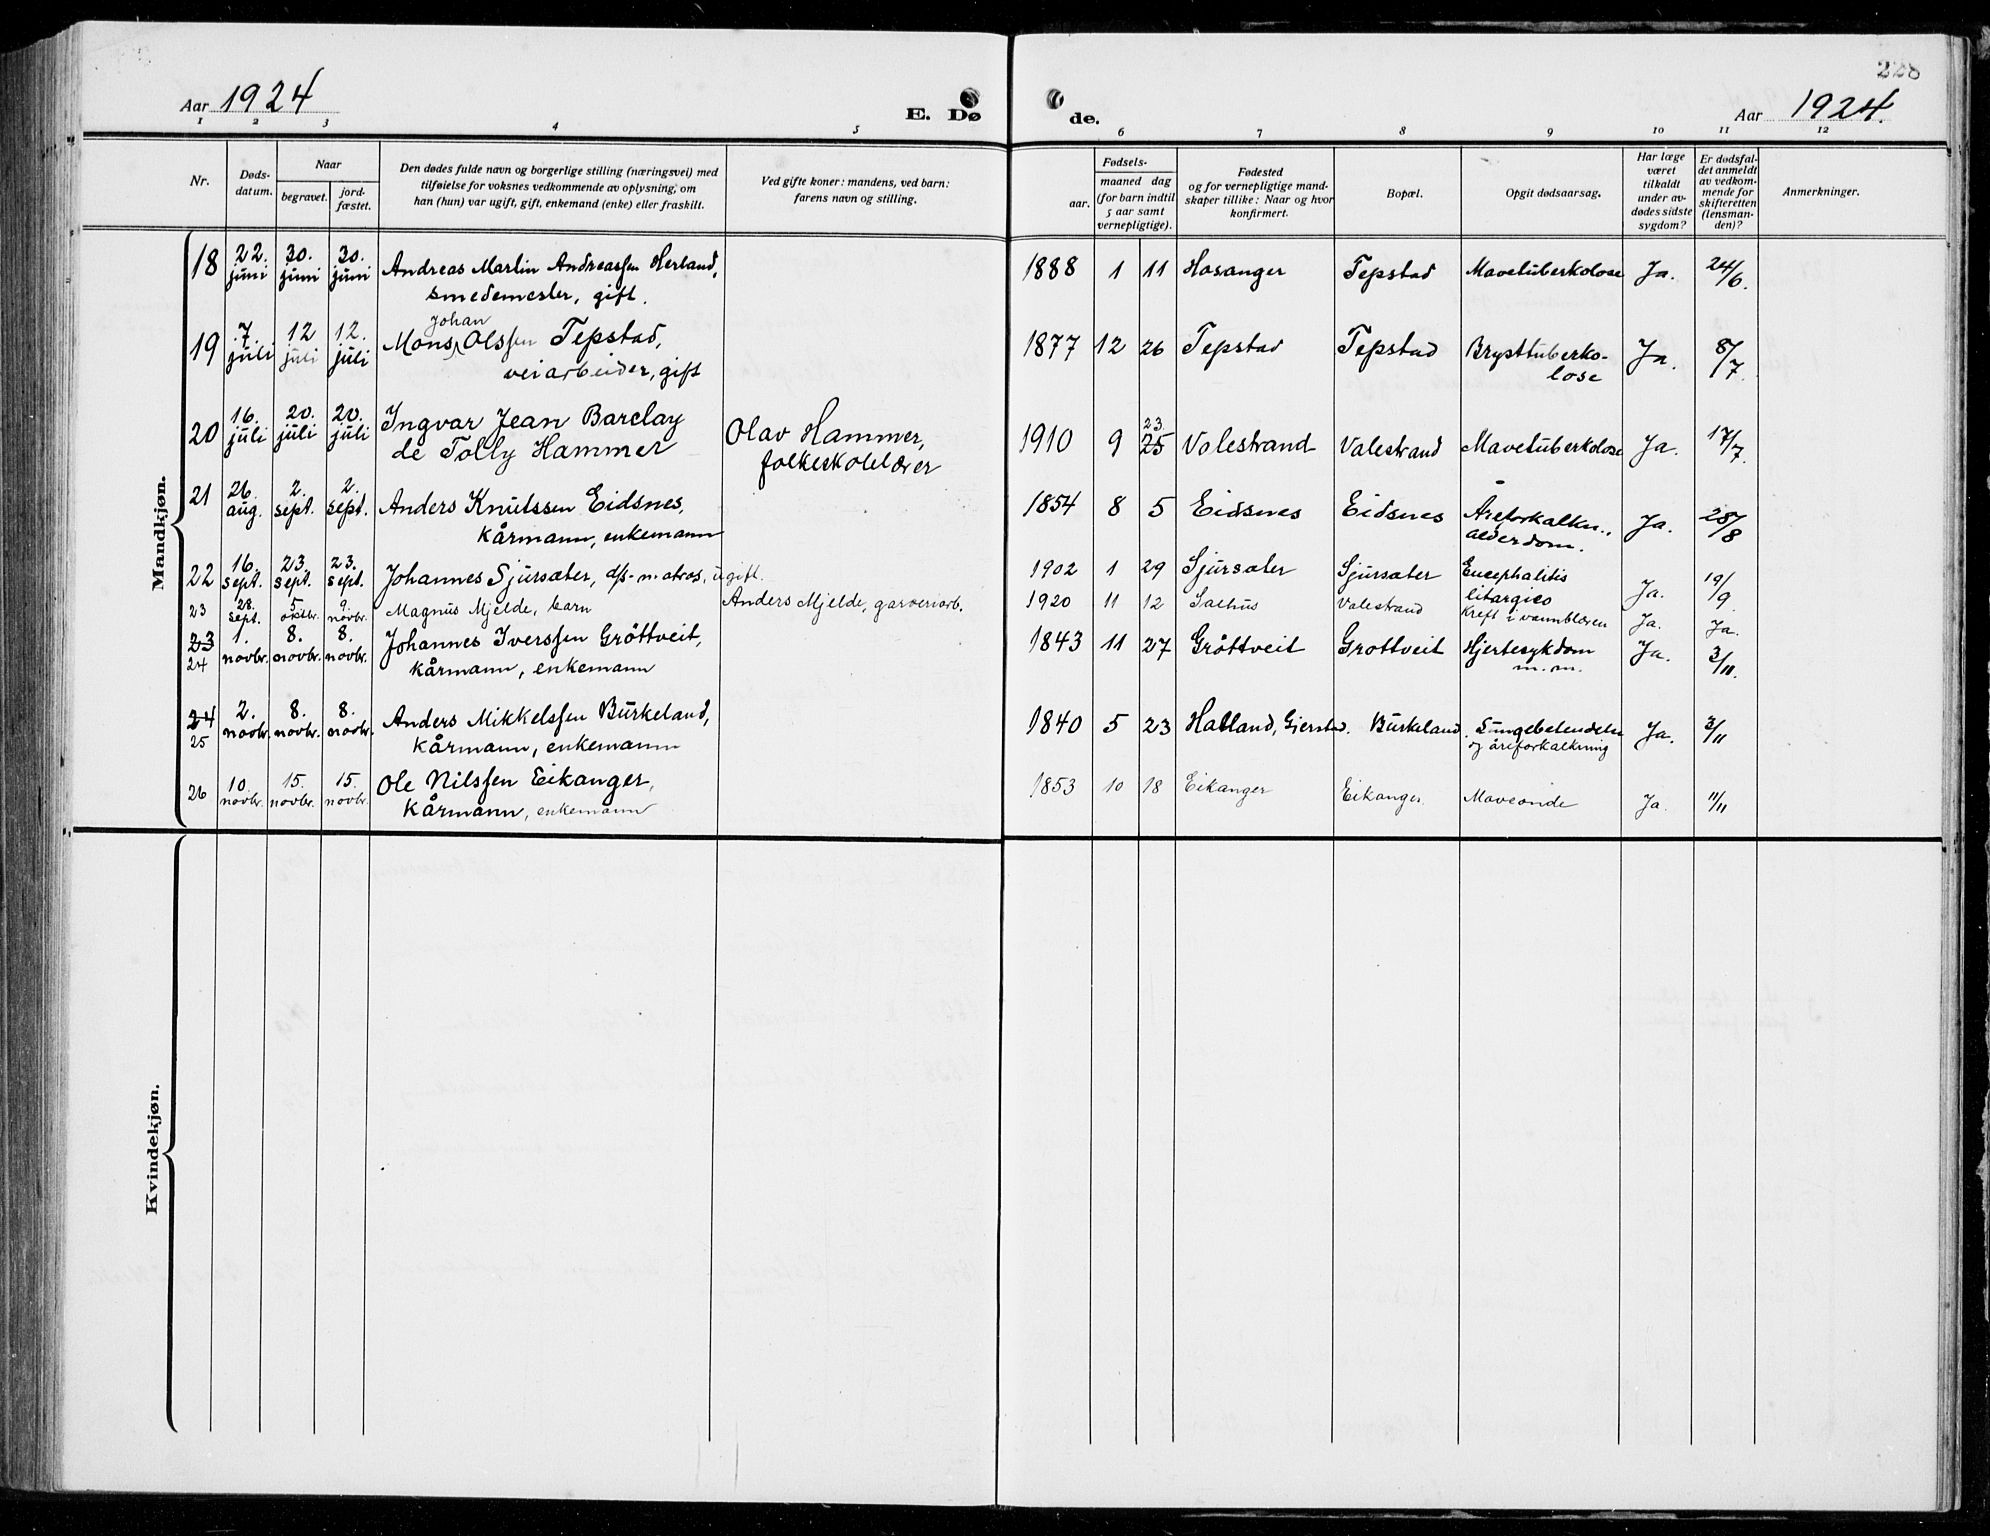 228
Aar 1924
E. Dø de.
Aar 1924.
1 2 3 4 5 6 7 8 9 10 11 12
Nr.
Døds-
datum.
Naar
begravet.
jord-
fæstet.
Den dødes fulde navn og borgerlige stilling (næringsvei) med
tilføielse for voksnes vedkommende av oplysning, om
han (hun) var ugift, gift, enkemand (enke) eller fraskilt.
Ved gifte koner: mandens, ved barn:
farens navn og stilling.
Fødsels-
aar.
maaned dag
(for barn indtil
5 aar samt
vernepligtige).
Fødested
og for vernepligtige mand-
skaper tillike: Naar og hvor
konfirmert.
Bopæl.
Opgit dødsaarsag.
Har læge
været
tilkaldt
under av-
dødes sidste
sygdom?
Er dødsfal-
det anmeldt
av vedkom-
mende for
skifteretten
(lensman-
den)?
Anmerkninger.
Mandkjøn.
18 22. juni 30. juni 30. juni Andreas Martin Andreassen Herland,
smedemester, gift.
1888 1 11 Hosanger Tepstad Mavetuberkolose Ja. 24/6.
19 7. juli 12 juli 12. juli Mons Johan Olssen Tepstad,
veiarbeider, gift
1877 12 26 Tepstad Tepstad Brysttuberko-
lose Ja. 8/7.
20 16. juli 20. juli 20. juli Ingvar Jean Barclay
de Tolly Hammer
Olav Hammer,
folkeskolelærer
1910 9 23. 25 Valestrand Valestrand Mavetuberkolose Ja. 17/7.
21 26. aug. 2. sept. 2. sept. Anders Knutssen Eidsnes,
kårmann, enkemann
1854 8 5 Eidsnes Eidsnes Åreforkalkn.,
alderdom. Ja. 28/8
22 16. sept. 23. sept. 23. sept. Johannes Sjursæter, d/s-matros, ugift.
1902 1 29 Sjursæter Sjursæter Encephalitis
litargico Ja. 19/9
23 28. sept. 5. oktbr. 9. novbr. Magnus Mjelde, barn
Anders Mjelde, garveriarb.
1920 11 12 Salhus Valestrand Kreft i vannblæren Ja. Ja.
23 24 1. novbr. 8. novbr. 8. novbr. Johannes Iverssen Gröttveit,
kårmann, enkemann
1843 11 27 Gröttveit Grottveit Hjertesykdom
m.m. Ja. 3/11.
24 25 2. novbr. 8. novbr. 8. novbr. Anders Mikkelssen Burkeland,
kårmann, enkemann
1840 5 23 Hatland, Gjerstad. Burkeland. Lungebetendelse
og åreforkalkning Ja. 3/11
26 10. novbr. 15. novbr. 15. novbr. Ole Nilssen Eikanger,
kårmann, enkemann
1853 10 18 Eikanger Eikanger. Maveonde Ja. 11/11
Kvindekjøn.